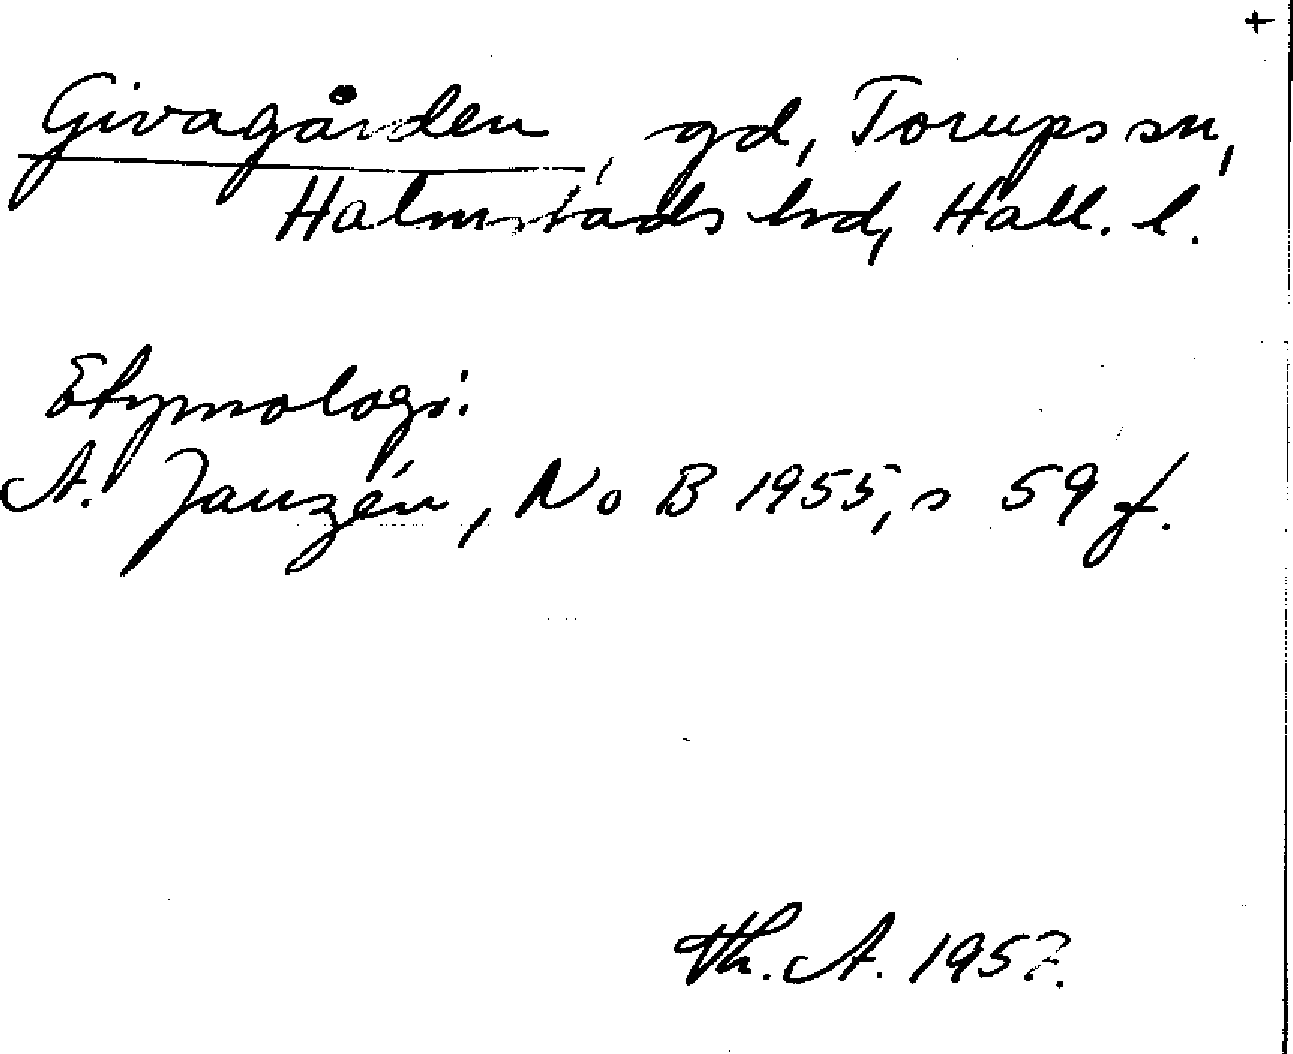 +
Givagården, gd, Torups sn,
Halmstads hrd, Hall. l.
Etymologi:
A. Janzén, NoB 1955, s 59 f.
Th. A. 1957.